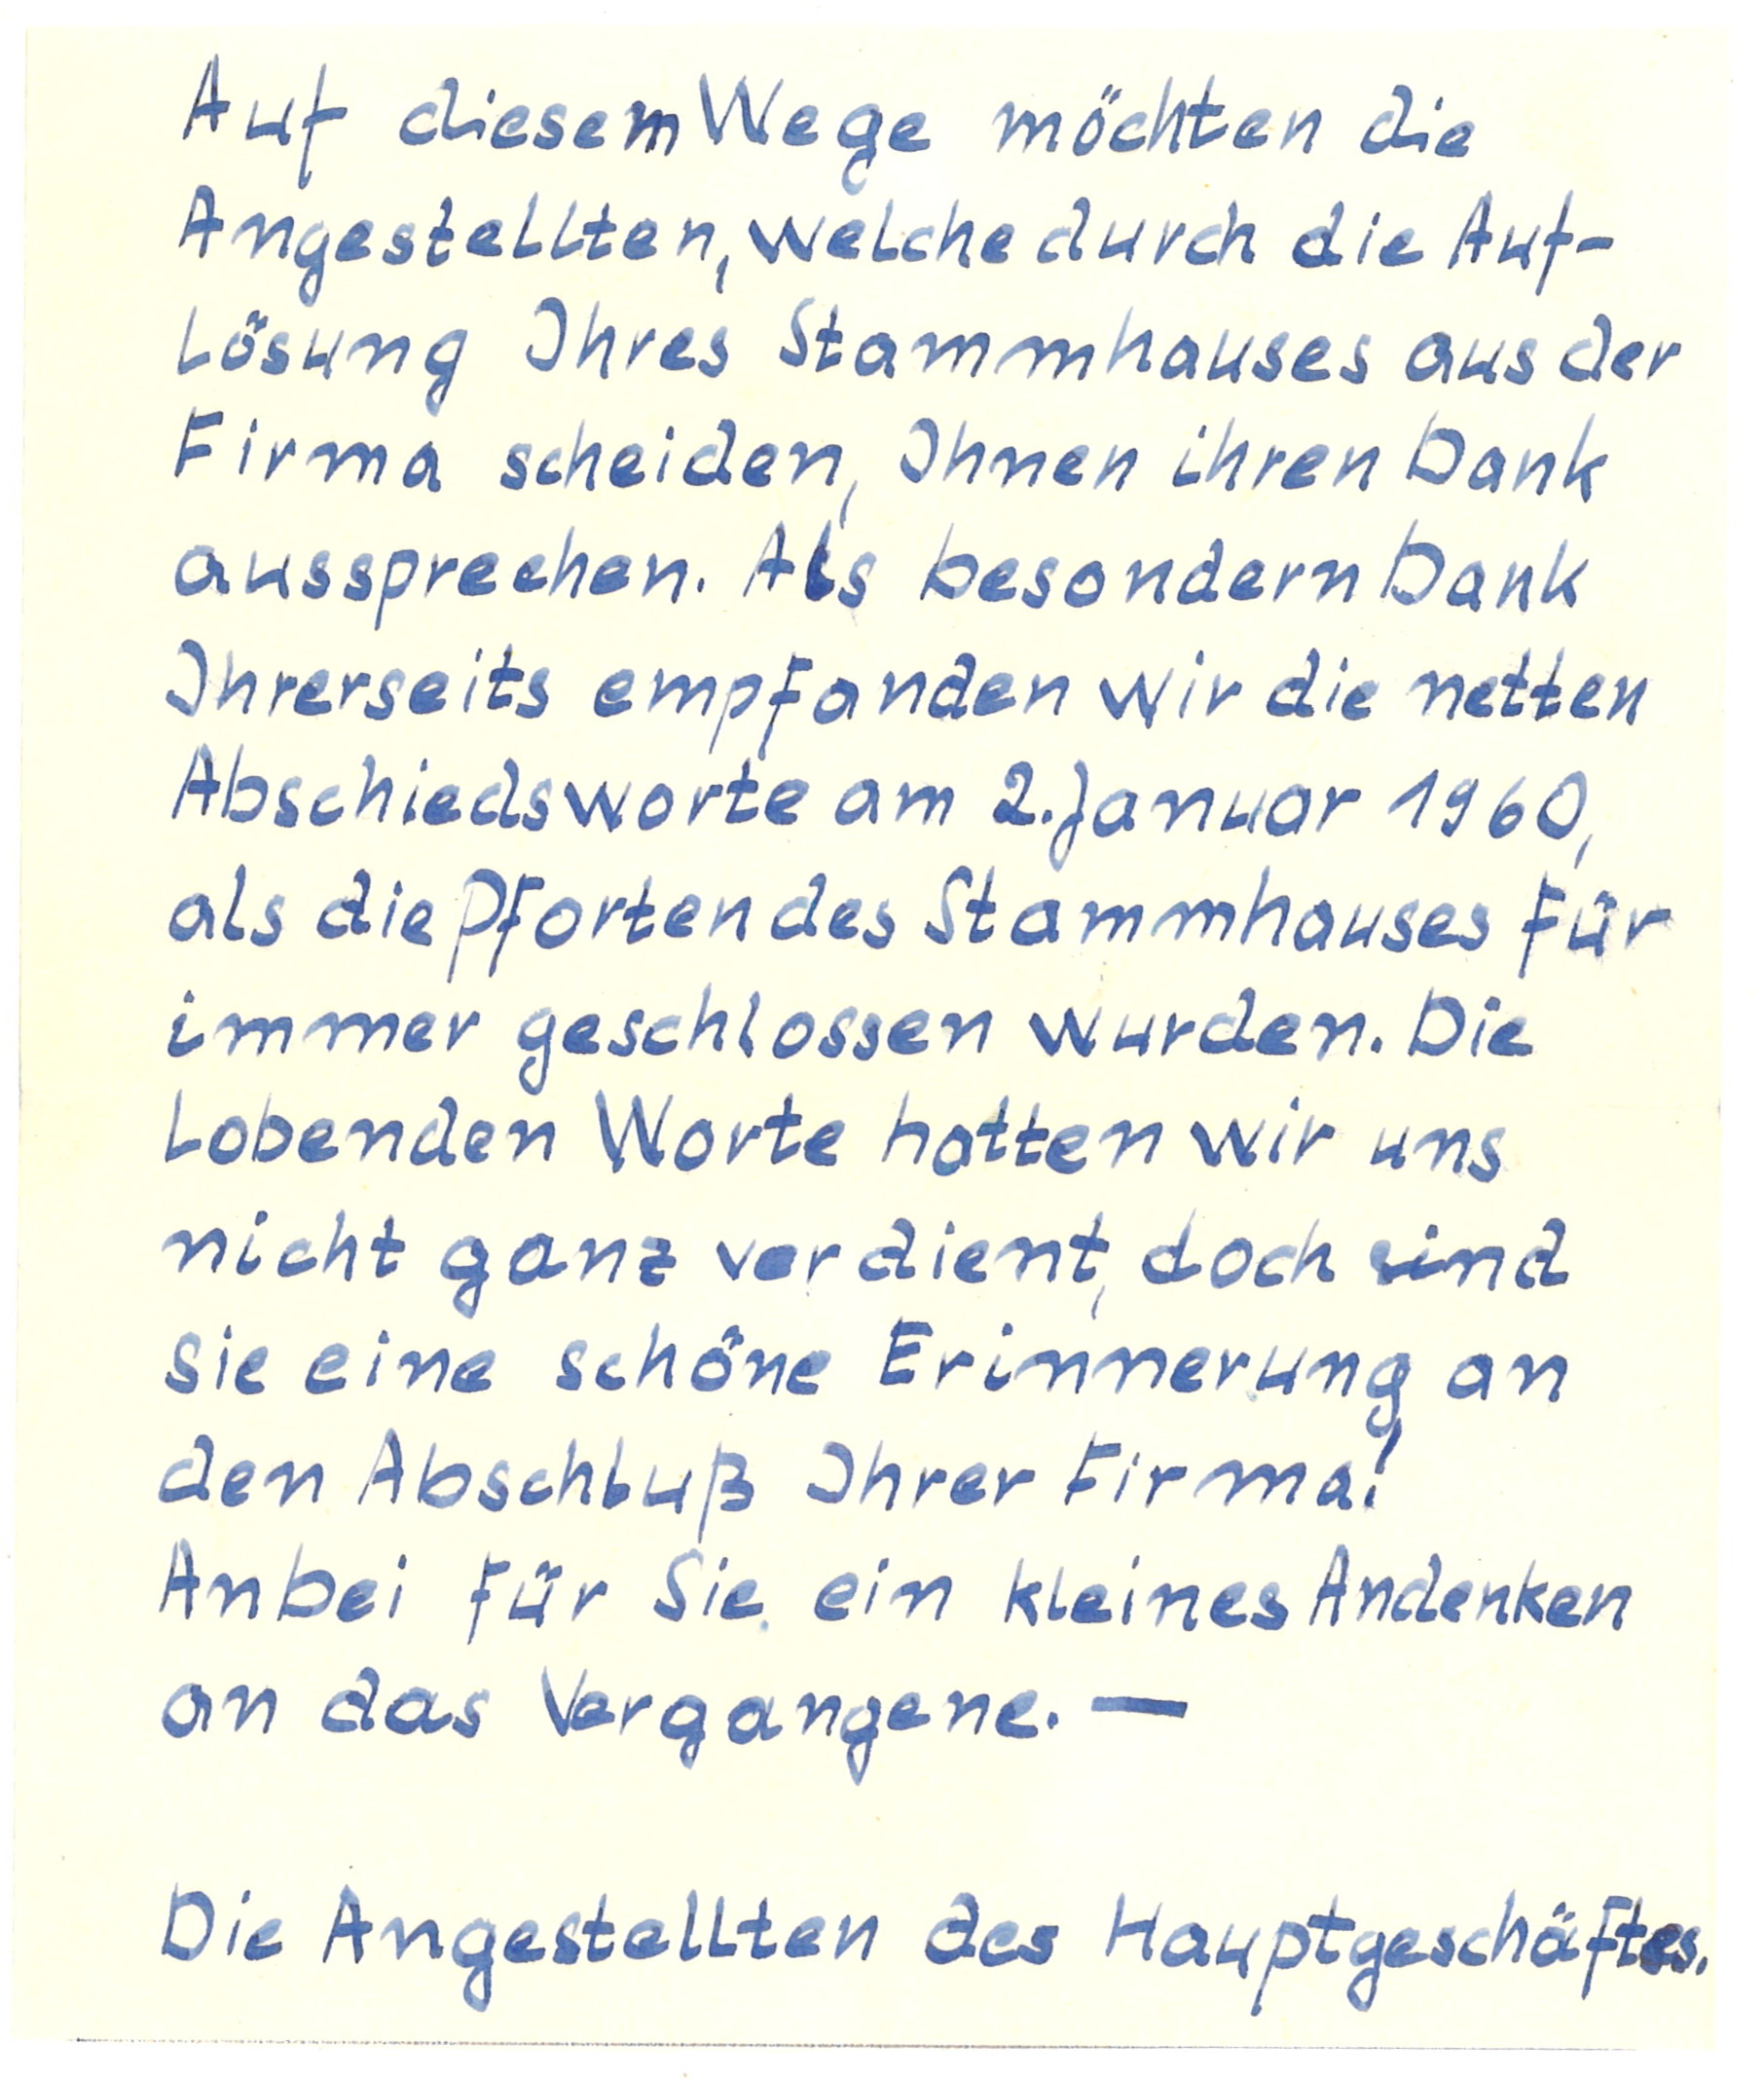 Auf diesem Wege möchten die
Angestellten, welche durch die Auf-
lösung Ihres Stammhauses aus der
Firma scheiden, Ihnen ihren Dank
aussprechen. Als besondern Dank
Ihrerseits empfanden wir die netten
Abschiedsworte am 2. Januar 1960,
als die Pforten des Stammhauses für
immer geschlossen wurden. Die
lobenden Worte hatten wir uns
nicht ganz verdient, doch sind
sie eine schöne Erinnerung an
den Abschluß Ihrer Firma!
Anbei für Sie ein kleines Andenken
an das Vergangene. —
Die Angestellten des Hauptgeschäftes.